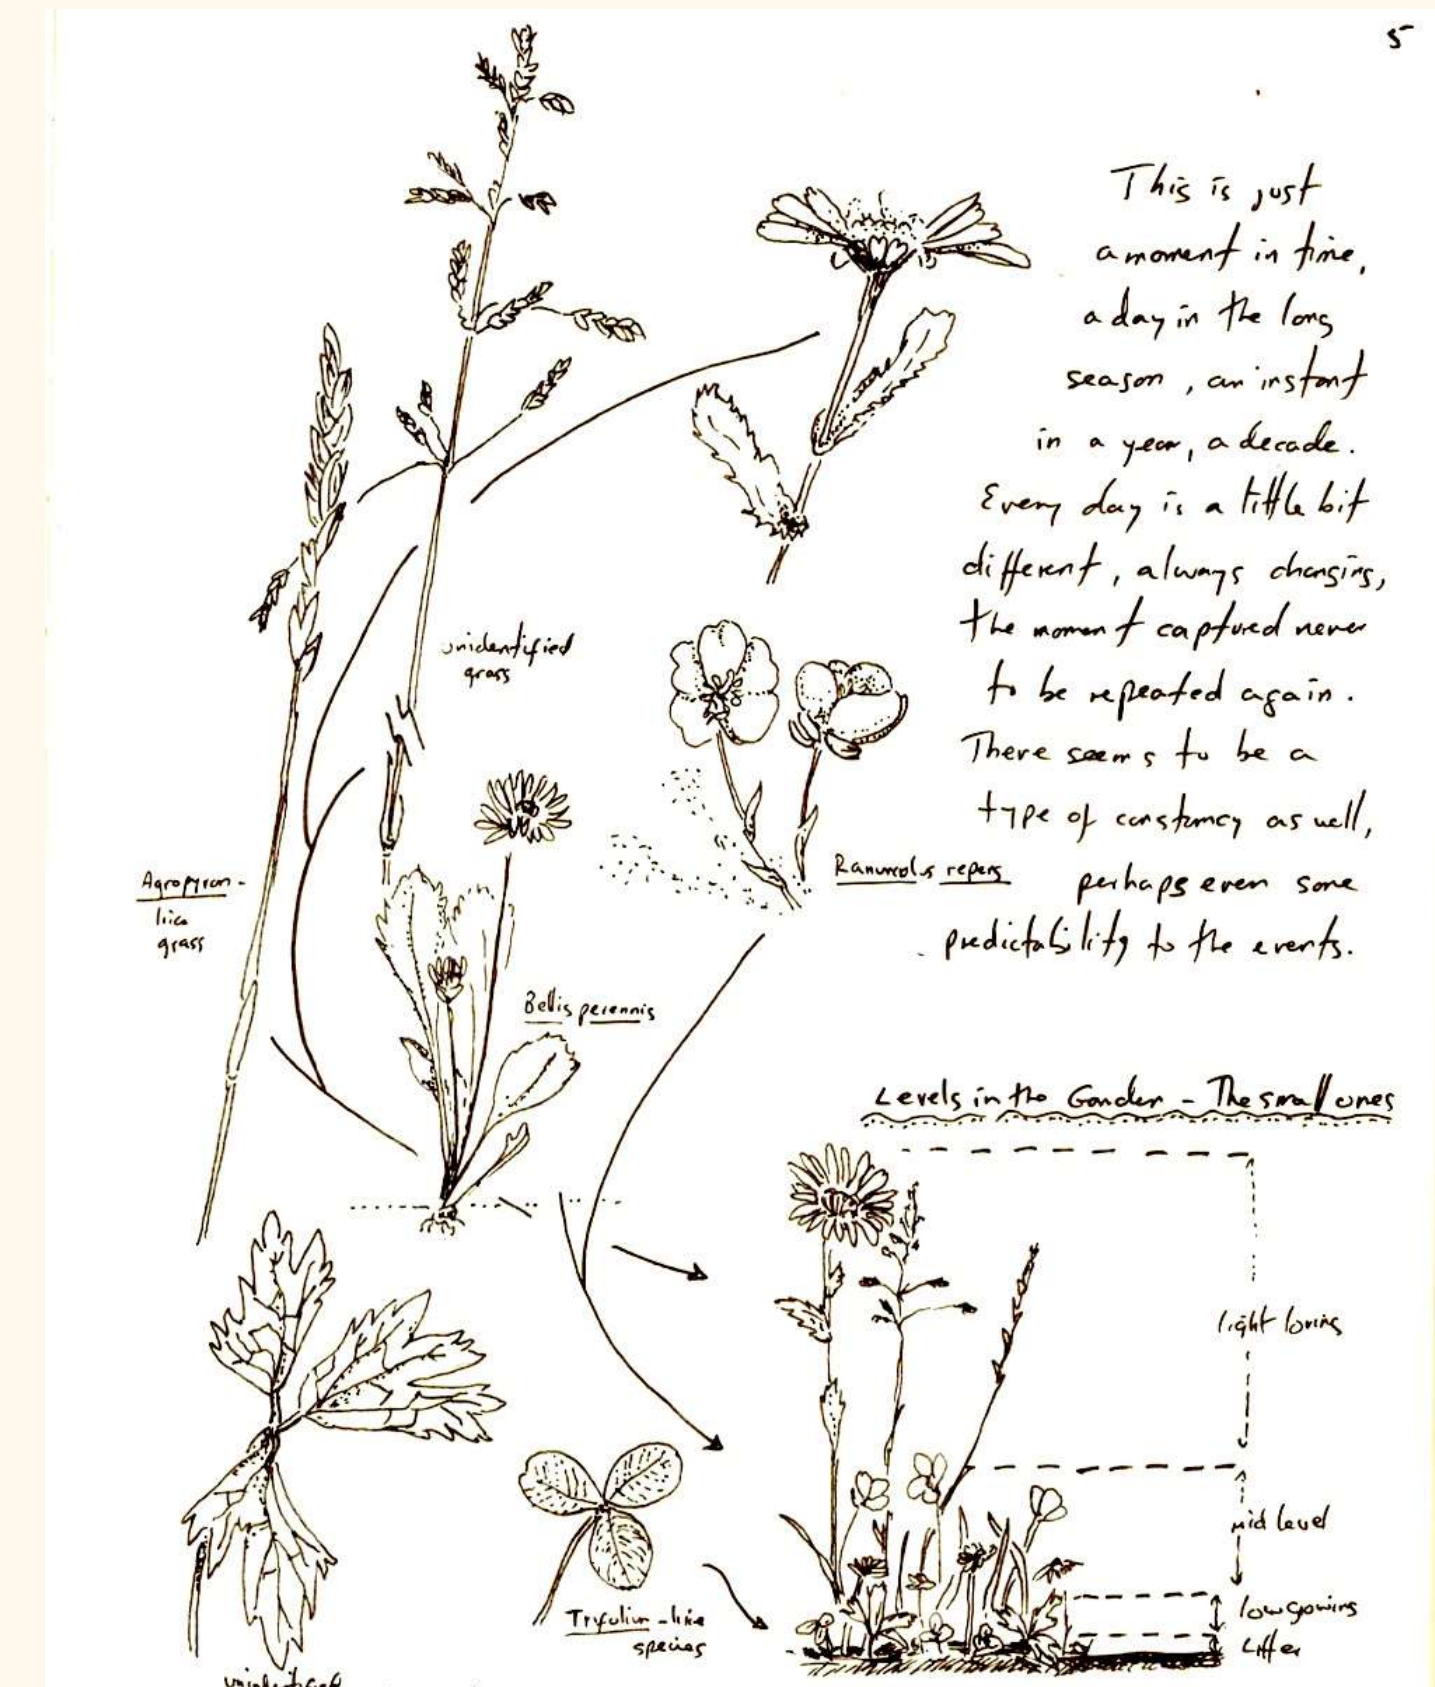 5
This is just
a moment in time,
a day in the long
season, an instant
in a year, a decade.
Every day is a little bit
different, always changing,
the moment captured never
to be repeated again.
There seems to be a
type of constancy as well,
perhaps even some
predictability to the events.
unidentified
grass
Agropyron-
like
grass
Ranunculus repens
Bellis perennis
Levels in the Garden - The small ones
light loving
mid level
low growing
Litter
Trifolium-like
species
unidentified